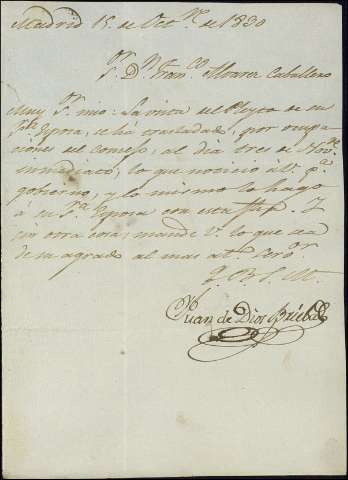 Madrid 15 de Oct.e de 1830
S.r D.n Fran.co Alvarez Caballero
Muy S.r mio: La vista del Pleyto de su
S.ra Esposa, se ha trasladado, por ocupa
ciones del consejo, al dia tres de Nov.e
inmediato, lo que noticio á V. p.a
gobierno, y lo mismo lo hago
á su S.ra Esposa con esta fha. Y
sin otra cosa, mande V. lo que sea
de su agrado al mas at. Ser.or
Q. B. S. M.
Juan de Dios Brieba